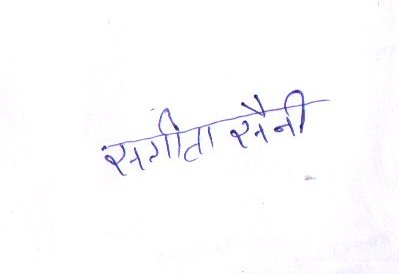 संगीता सैनी